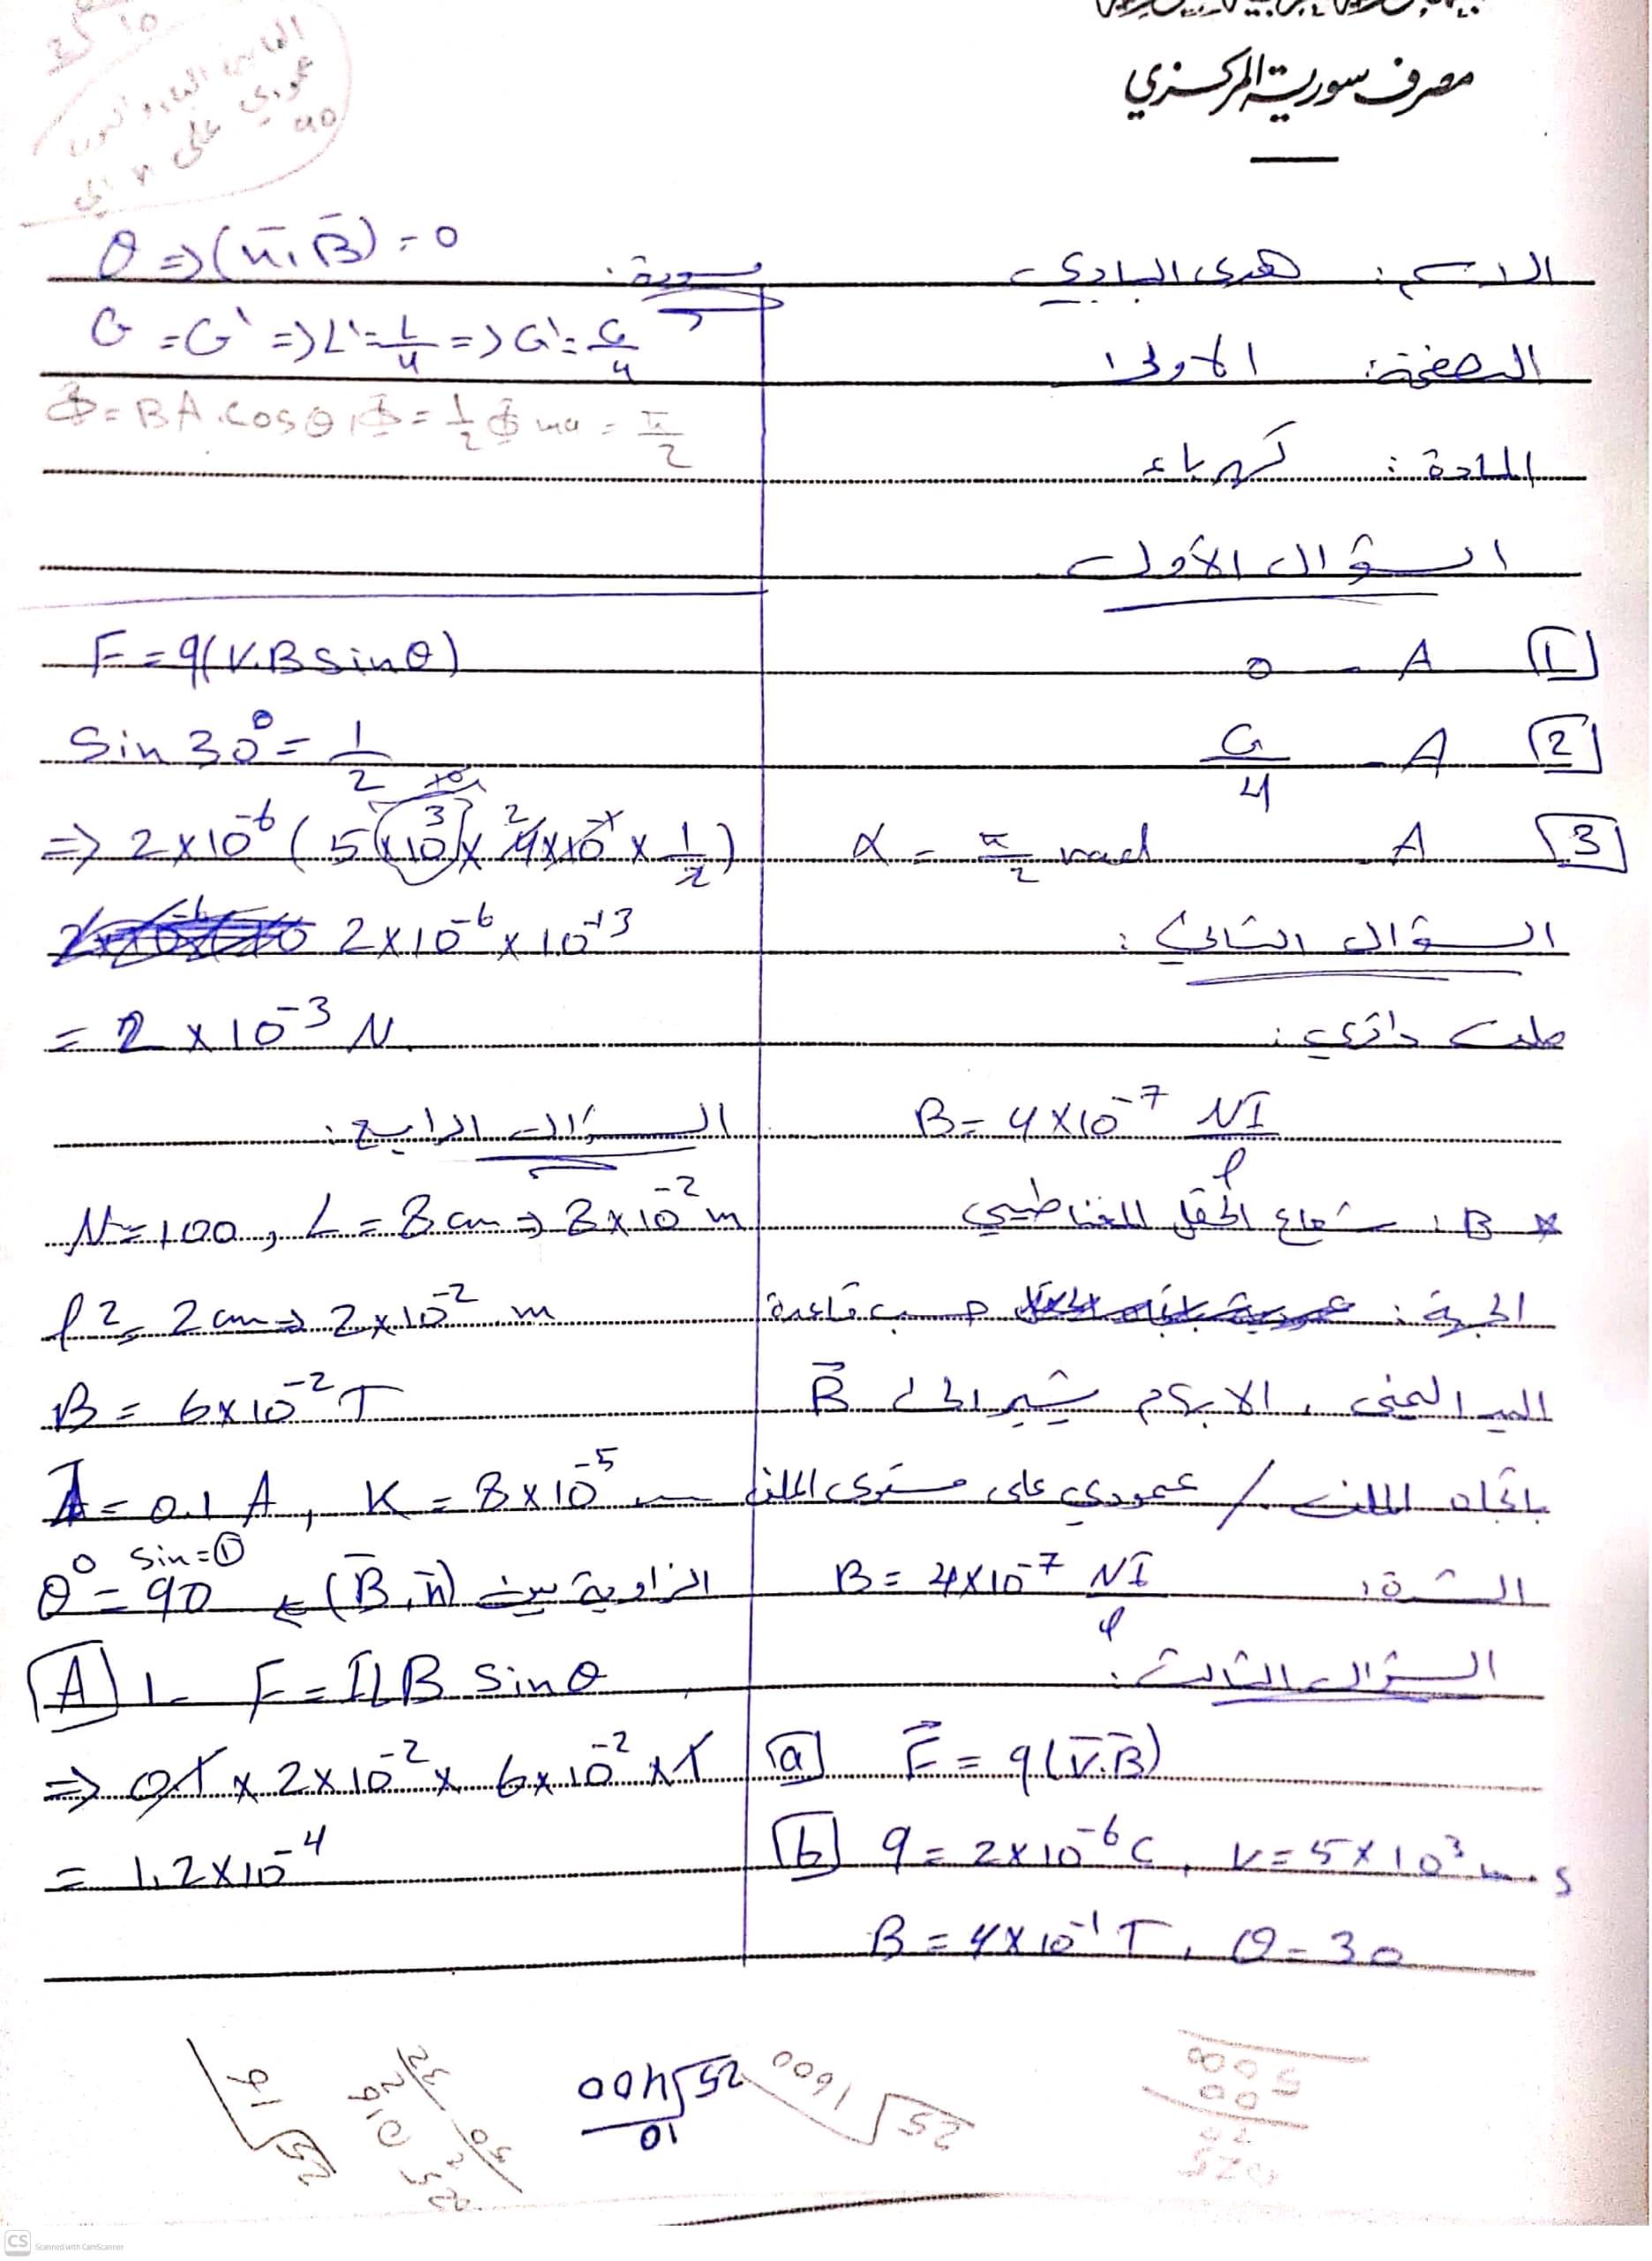 مصرف سورية المركزي
الاسم: هدى البادي
الصفحة: الأولى
المادة: كهرباء
السؤال الأول
1 A - 0
2 A - G/4
3 A - α = π/2 rad
السؤال الثاني:
ملف دائري:
B = 4×10^-7 NI/l
* B: شعاع الحقل المغناطيسي
الجهة: حسب قاعدة
اليد اليمنى، الابهام يشير الى B
باتجاه الملف / عمودي على مستوى الملف
الشدة: B = 4×10^-7 NI/l
السؤال الثالث:
a F = q(V.B)
b q = 2×10^-6 C, v = 5×10^3 m.s
B = 4×10^-1 T, θ = 30
مسودة:
θ => (n, B) = 0
G = G' => L' = L/4 => G' = G/4
Φ = BA.cosθ, Φ = 1/2 Φ ma = π/2
F = q(V.B sinθ)
Sin 30° = 1/2
=> 2×10^-6 (5×10^3 × 4×10^-1 × 1/2)
2×10^-6 × 10^+3
= 2×10^-3 N
السؤال الرابع:
N = 100, L = 8 cm => 8×10^-2 m
l 2 = 2 cm => 2×10^-2 m
B = 6×10^-2 T
I = 0.1 A, K = 8×10^-5
sin = 1
θ° = 90 ← (B, n) الزاوية بين
A 1- F = ILB sinθ
=> 0.1 × 2×10^-2 × 6×10^-2 × 1
= 1.2×10^-4
25 400
10
25 1600
CS Scanned with CamScanner